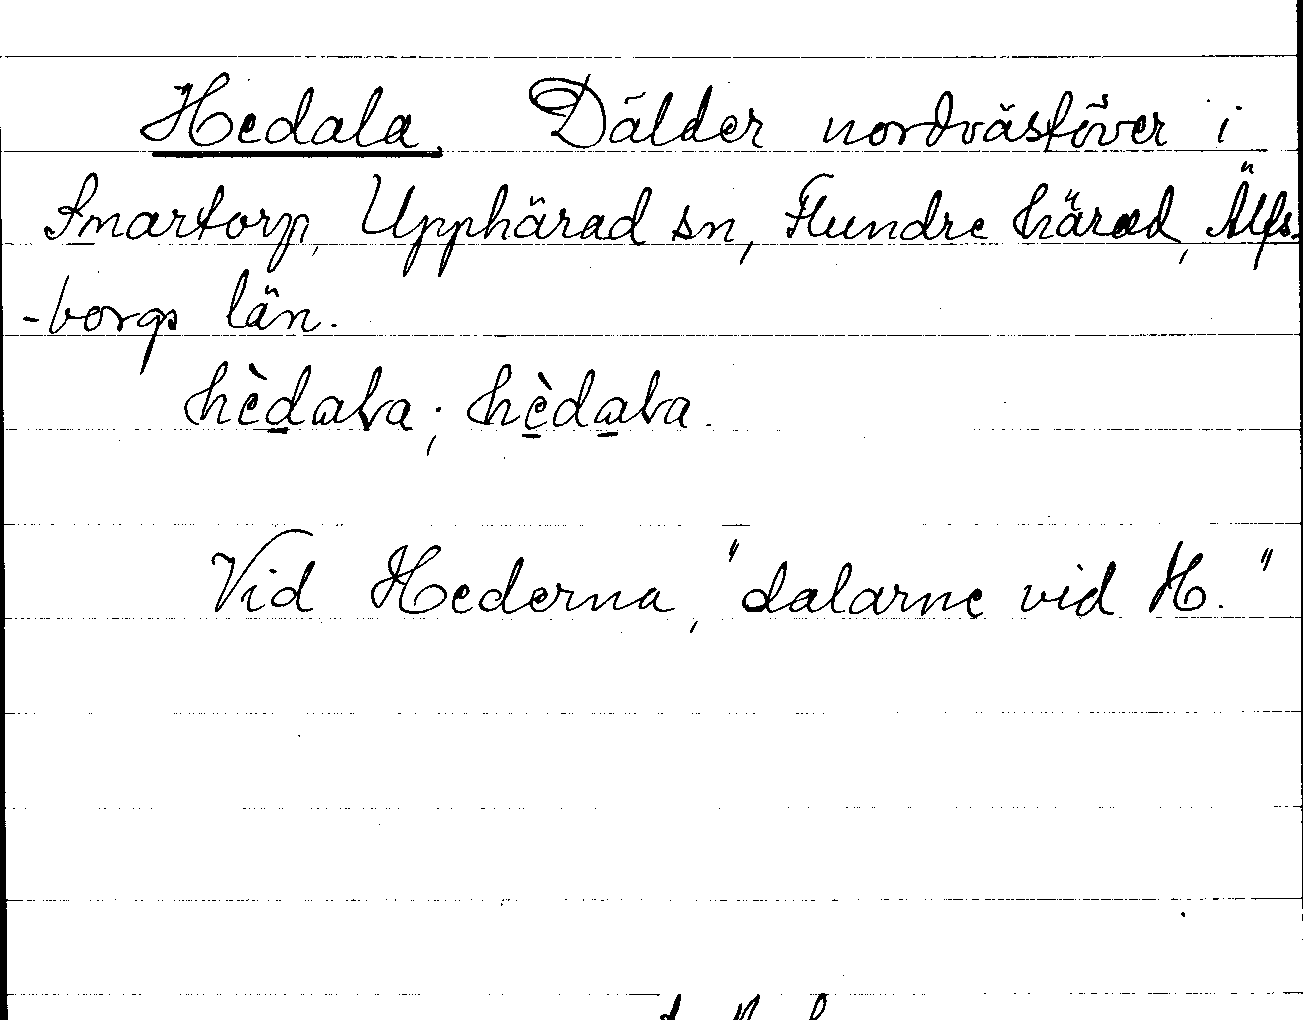 Hedala. Dälder nordväståver i
Smartorp, Upphärad sn, Flundre härad, Älfs-
-borgs län.
hèdaɫa; hèdaɫa.
Vid Hederna, "dalarne vid H."